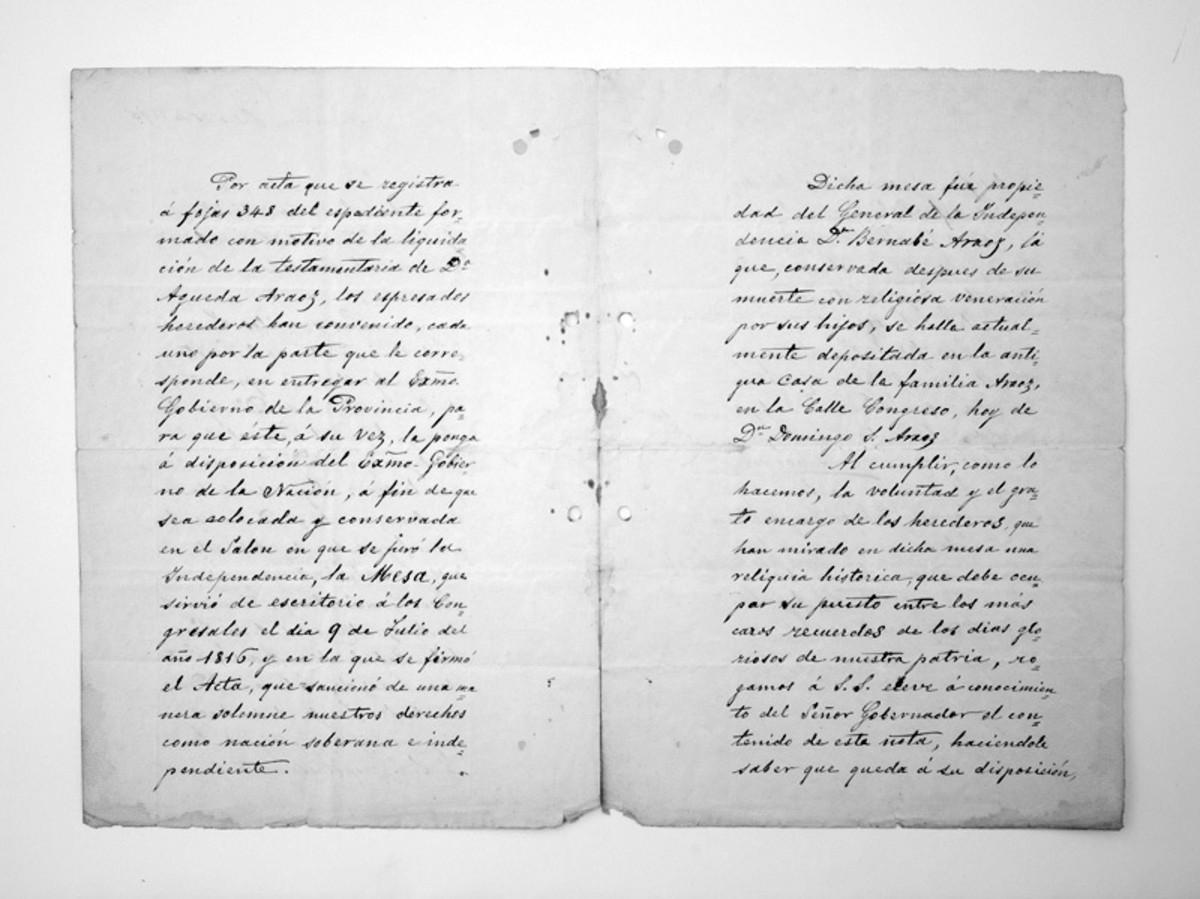 Por acta que se registra
á fojas 348 del espediente for=
mado con motivo de la liquida
ción de la testamentaria de Dª
Agueda Araoz, los espresados
herederos han convenido, cada
uno por la parte que le corre=
sponde, en entregar al Exmo.
Gobierno de la Provincia, pa=
ra que éste, á su vez, la ponga
á disposición del Exmo. Gobier=
no de la Nación, á fin de que
sea colocada y conservada
en el Salon en que se juró la
Independencia, la Mesa, que
sirvió de escritorio á los Con=
gresales el dia 9 de Julio del
año 1816, y en la que se firmó
el Acta, que sancionó de una ma=
nera solemne nuestros derechos
como nación soberana e inde=
pendiente.
Dicha mesa fué propie=
dad del General de la Indepen=
dencia Dn. Bernabé Araoz, la
que, conservada despues de su
muerte con religiosa veneración
por sus hijos, se halla actual=
mente depositada en la anti=
gua casa de la familia Araoz,
en la Calle Congreso, hoy de
Dn Domingo S. Araoz
Al cumplir, como lo
hacemos, la voluntad y el gra=
to encargo de los herederos, que
han mirado en dicha mesa una
reliquia historica, que debe ocu=
par su puesto entre los más
caros recuerdos de los dias glo=
riosos de nuestra patria, ro=
gamos á S.S. eleve á conocimien=
to del Señor Gobernador el con=
tenido de esta nota, haciendole
saber que queda á su disposición,